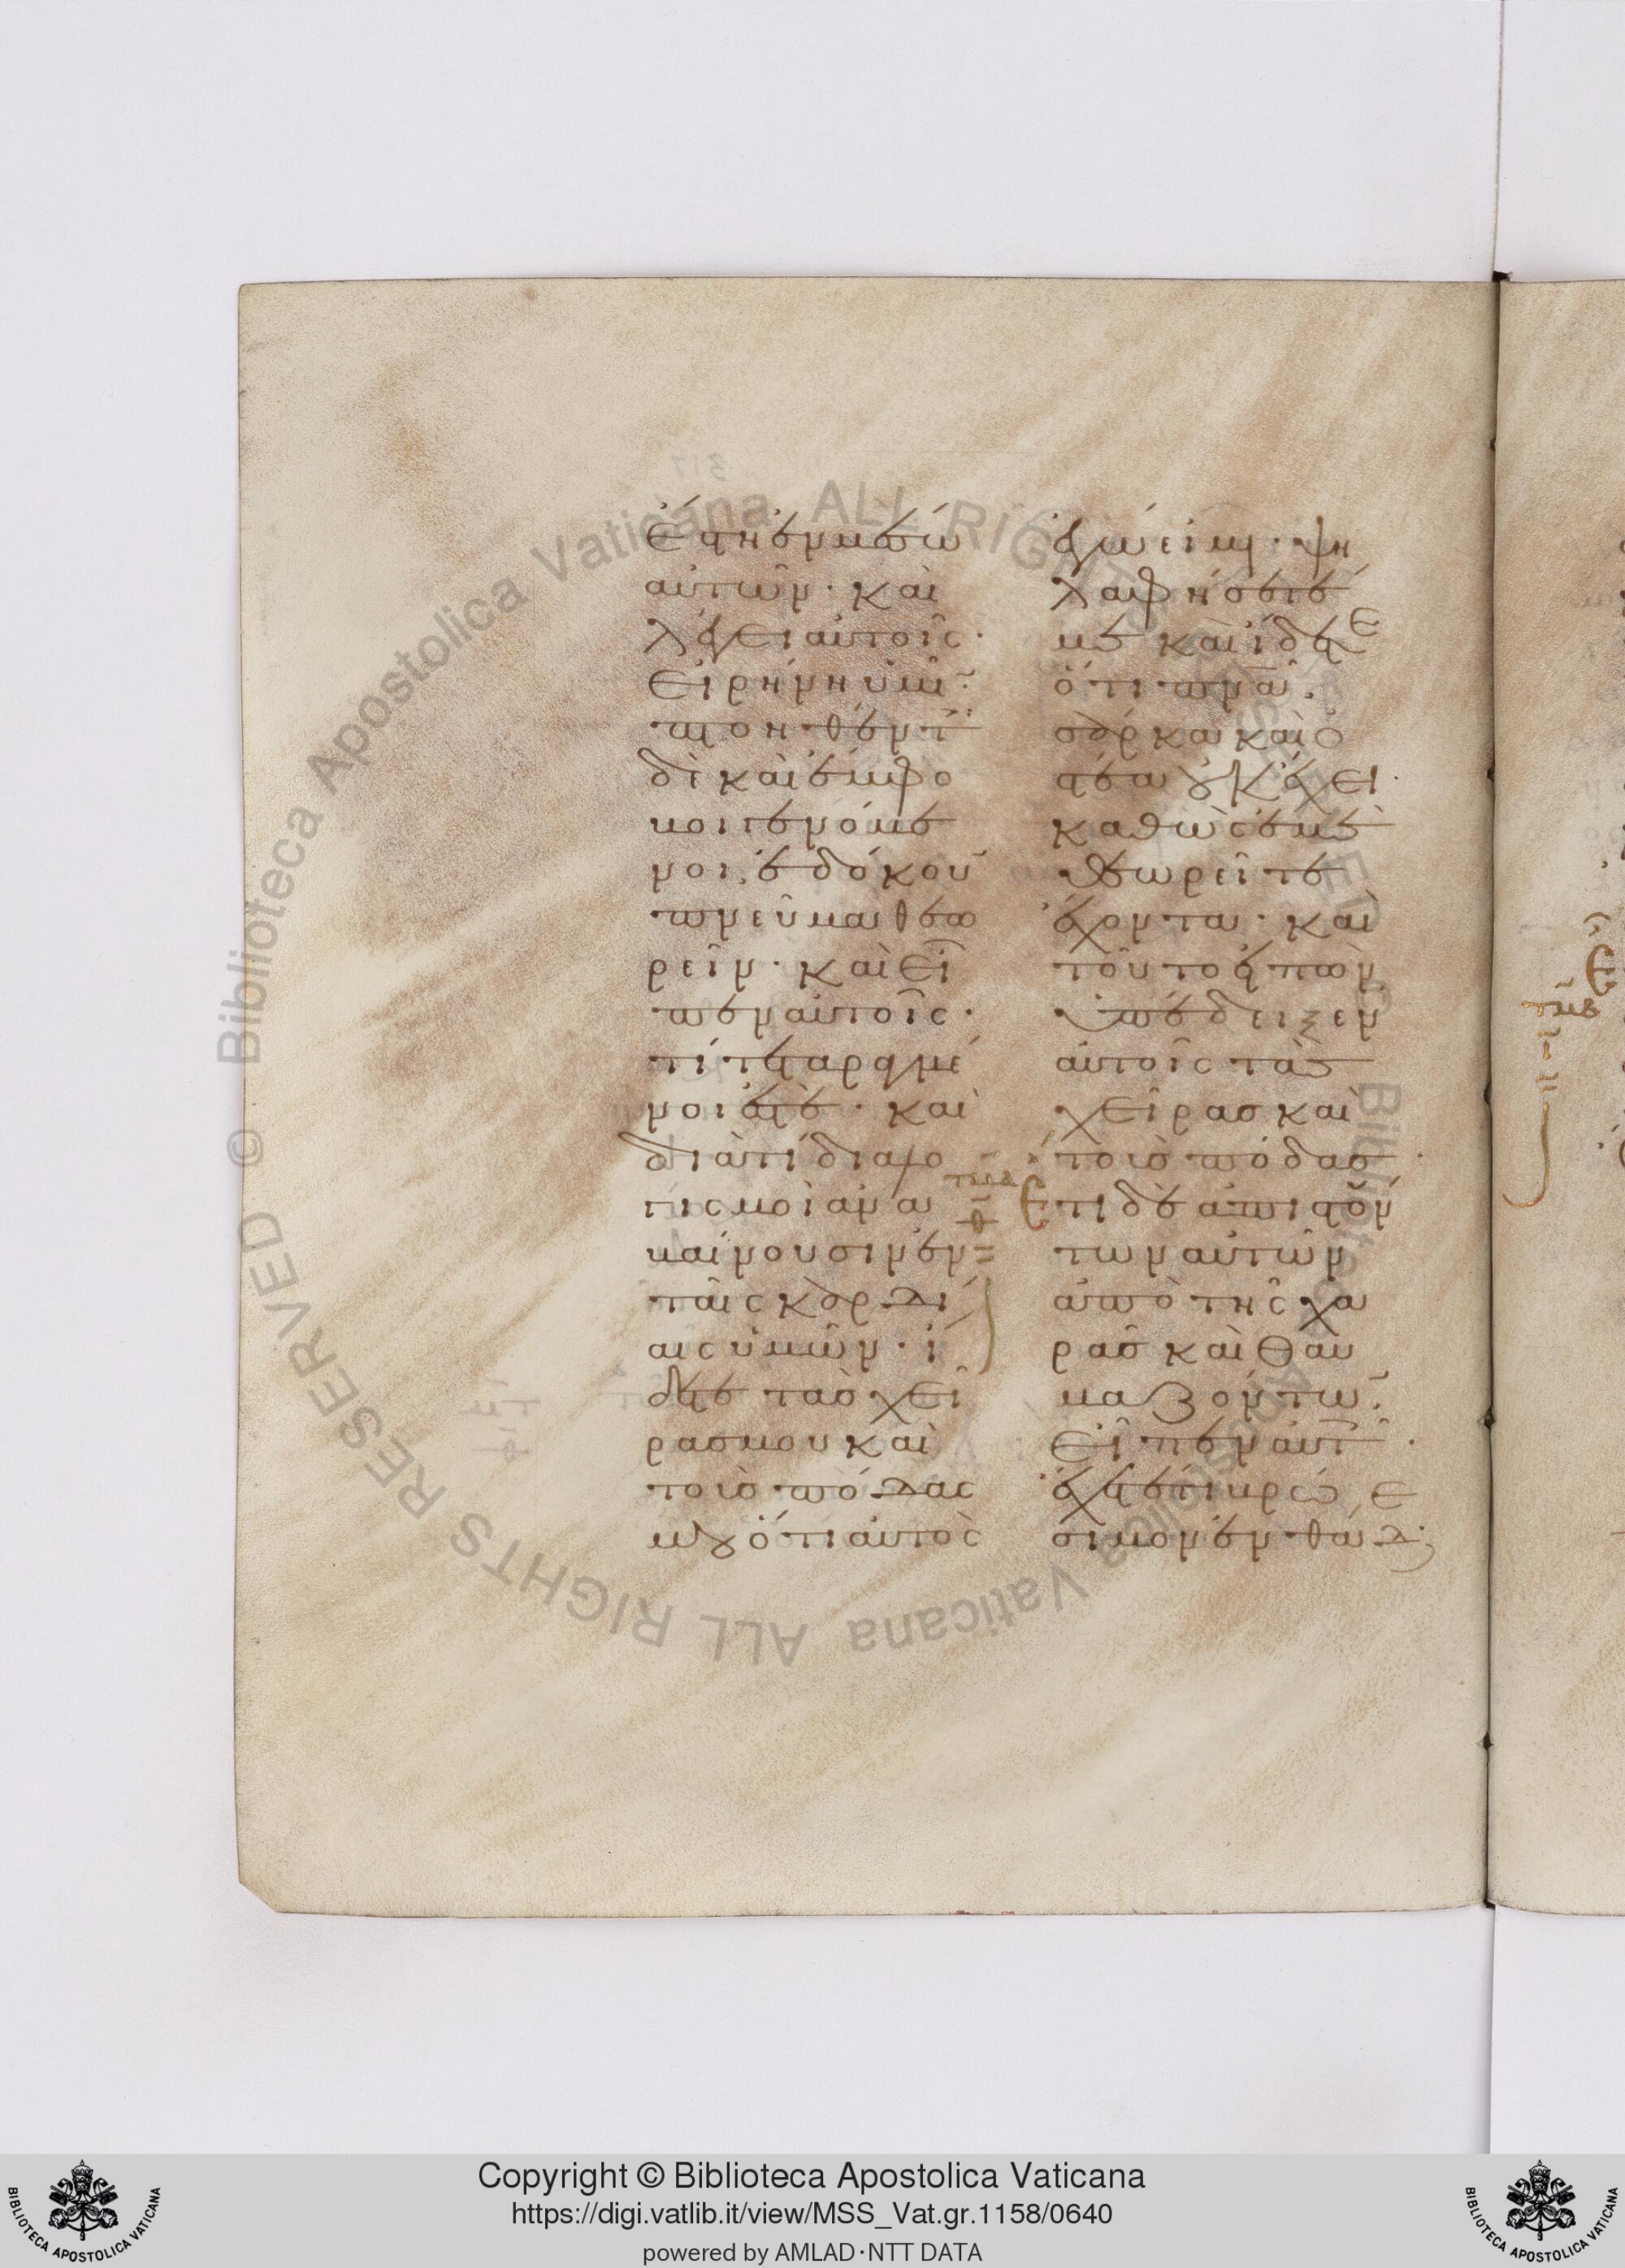 ἔστη ἐν μέσω
αὐτῶν· καὶ
λέγει αὐτοῖς·
εἰρήνη ὑμῖ̄·
πτοηθέντ
δὲ καὶ ἔμφο
βοι γενόμε
νοι, ἐδόκοῡ
πνεῦμα θεω
ρεῖν· καὶ εἶ
πεν αὐτοῖς·
τί τεταραγμέ
νοι ἐστέ· καὶ
διατί διαλο
γισμοὶ ἀνα
βαίνουσιν ἐν
ταῖς καρδί
αις ὑμῶν· ἴ
δετε τὰς χεῖ
ρας μου καὶ
τοὺς πόδας
μου ὅτι αὐτὸς
ἐγώ εἰμι· ψη
λαφήσετέ
με καὶ ἴδετε
ὅτι πνᾱ
σάρκα καὶ ὀ
στέα οὐκ ἔχει·
καθὼς ἐμὲ
θεωρεῖτε
ἔχοντα· καὶ
τοῦτο εἰπὼν
ὑπέδειξεν
αὐτοῖς τὰς
χεῖρας καὶ
τοὺς πόδας·
Ἔτι δὲ ἀπιστούν
των αὐτῶν
ἀπὸ τῆς χα
ρᾶς καὶ θαυ
μαζόντω̄·
εἶπεν αὐτ·
ἔχετέ τι βρώ
σιμον ἐνθάδε;
Copyright © Biblioteca Apostolica Vaticana
https://digi.vatlib.it/view/MSS_Vat.gr.1158/0640
powered by AMLAD·NTT DATA
BIBLIOTECA APOSTOLICA VATICANA
BIBLIOTECA APOSTOLICA VATICANA
© Biblioteca Apostolica Vaticana ALL RIGHTS RESERVED
© Biblioteca Apostolica Vaticana ALL RIGHTS RESERVED